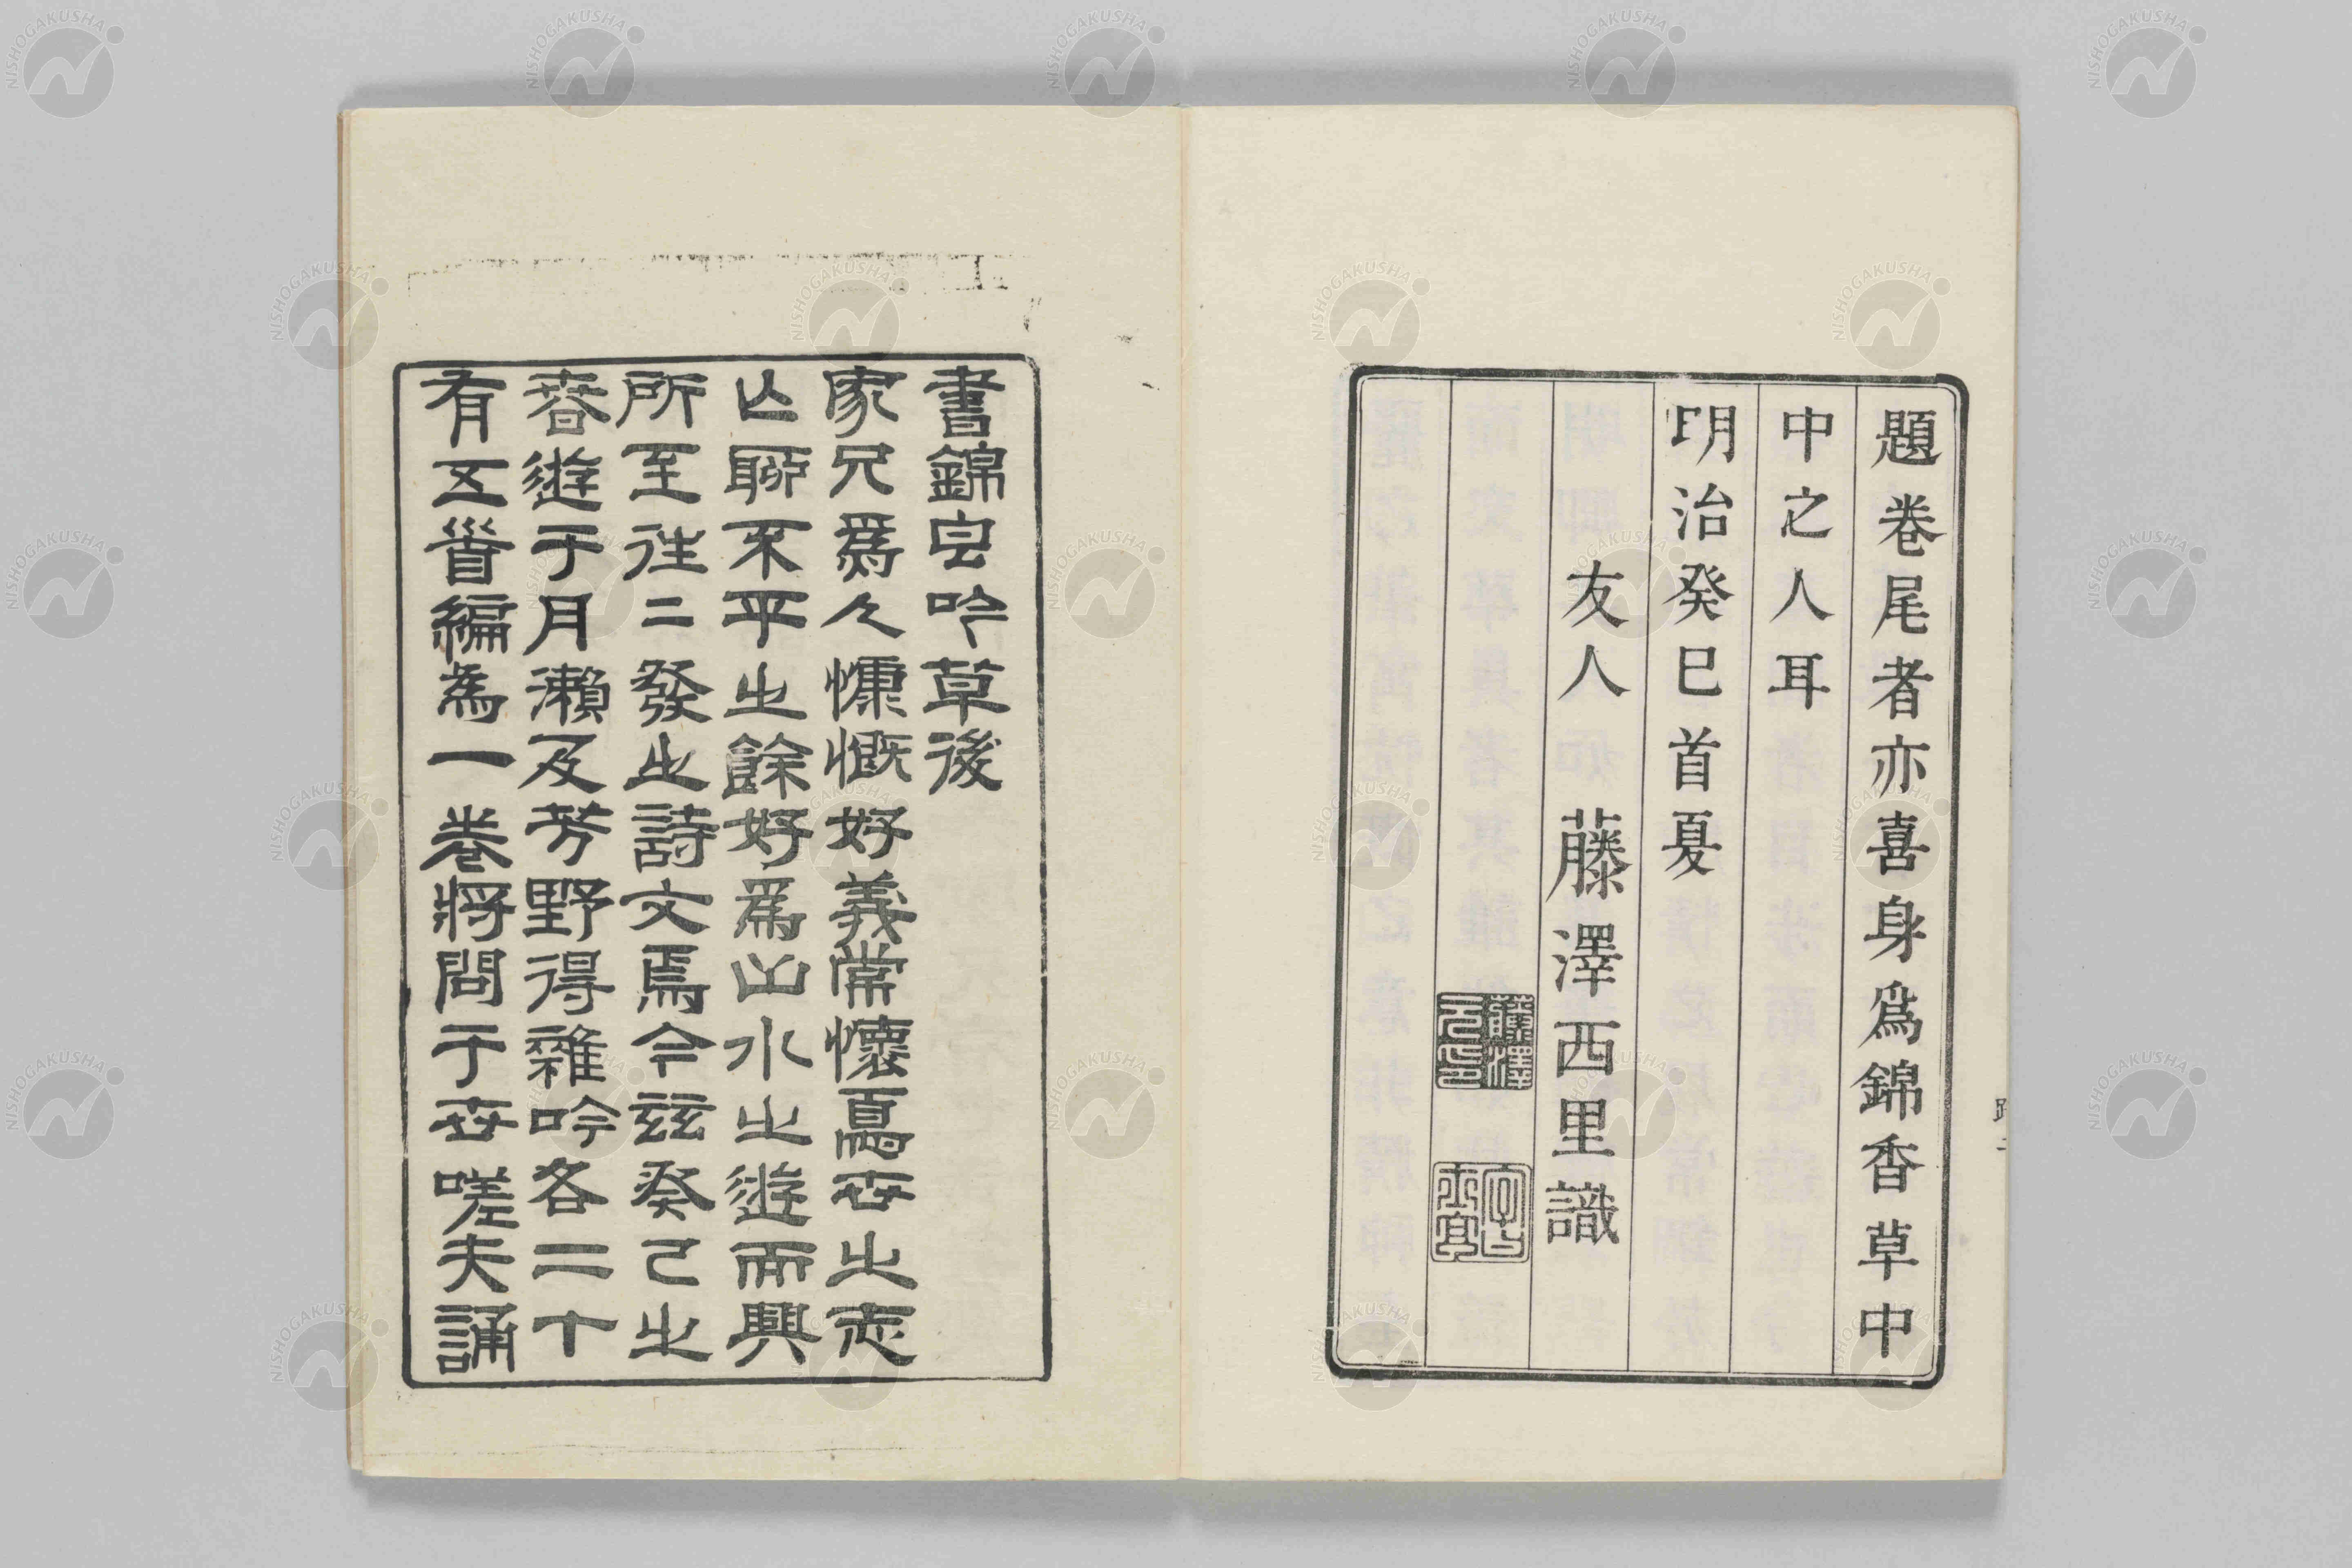 題巻尾者亦喜身為錦香草中
中之人耳
明治癸巳首夏
友人 藤澤西里識
書錦皀吟草後
家兄為人慷慨好義常懷憂世之志
亡聊不平之餘好為山水之遊而興
所至往二發之詩文焉今茲癸巳之
春遊于月瀨及芳野得雜吟各二十
有五首編為一卷將問于世嗟夫誦
NISHOGAKUSHA